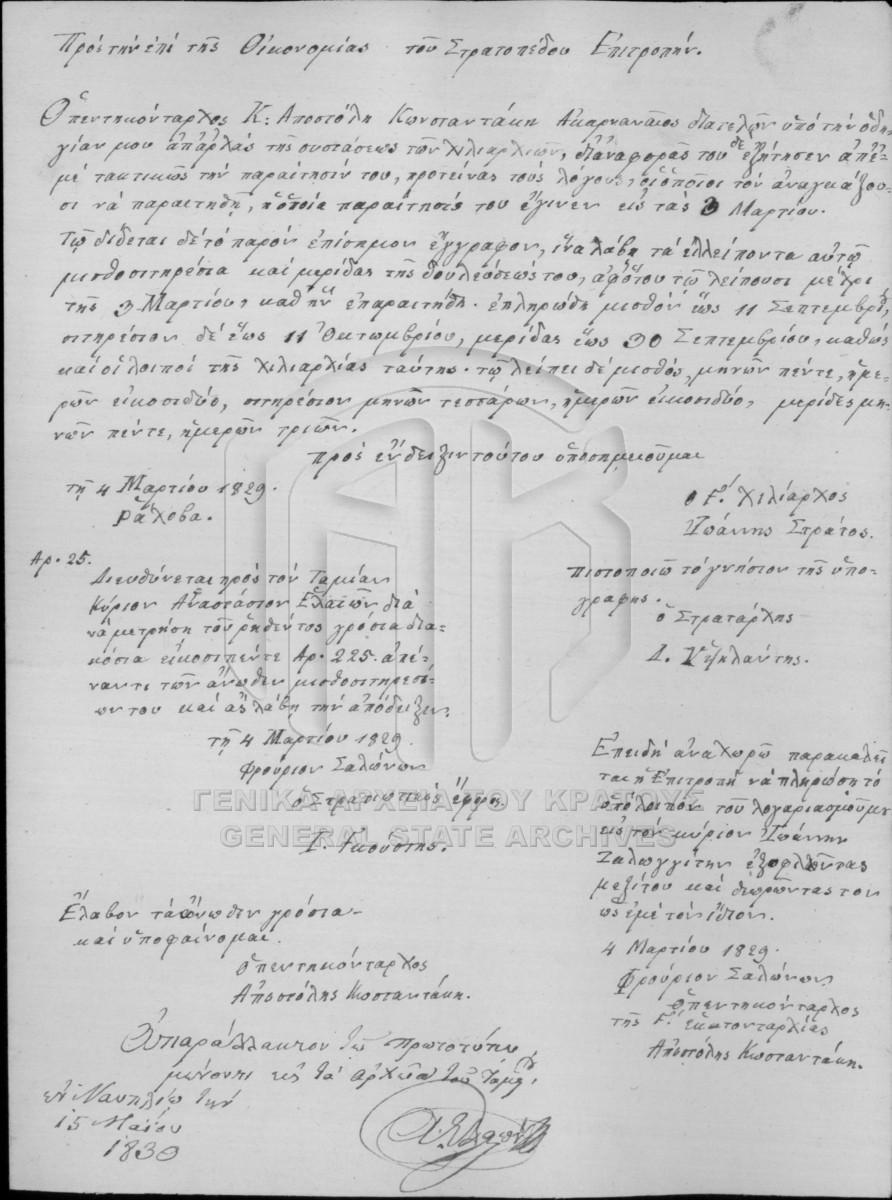 Πρὸς τὴν ἐπὶ τῆς Οἰκονομίας τοῦ Στρατοπέδου Ἐπιτροπήν.
Ὁ πεντηκόνταρχος Κ: Ἀποστόλη Κωνσταντάκη Ἀκαρναναῖος διατελῶν ὑπὸ τὴν ὁδη-
γίαν μου ἀπ' ἀρχᾶς τῆς συστάσεως τῶν Χιλιαρχιῶν, δι' ἀναφορᾶς του δὲ ἐζήτησεν ἀπ' ἐ-
μὲ τακτικῶς τὴν παραίτησίν του, προτείνας τοὺς λόγους, οἱ ὁποῖοι τὸν ἀναγκάζου-
σι νὰ παραιτηθῇ, ἡ ὁποία παραίτησίς του ἔγινεν εἰς τὰς 3 Μαρτίου.
Τῷ δίδεται δὲ τὸ παρὸν ἐπίσημον ἔγγραφον, ἵνα λάβῃ τὰ ἐλλείποντα αὐτῷ
μισθοσιτηρέσια καὶ μερίδας τῆς δουλεύσεώς του, ἀφ' ὅτου τῷ λείπουσι μέχρι
τῆς 3 Μαρτίου, καθ' ἣν ἐπαραιτήθη. ἐπληρώθη μισθὸν ἕως 11 Σεπτεμβρίου,
σιτηρέσιον δὲ ἕως 11 Ὀκτωμβρίου, μερίδας ἕως 30 Σεπτεμβρίου, καθὼς
καὶ οἱ λοιποὶ τῆς χιλιαρχίας ταύτης. τῷ λείπει δὲ μισθὸς, μηνῶν πέντε, ἡμε-
ρῶν εἰκοσιδύο, σιτηρέσιον μηνῶν τεσσάρων, ἡμερῶν εἰκοσιδύο, μερίδες μη-
νῶν πέντε, ἡμερῶν τριῶν.
πρὸς ἔνδειξιν τούτου ὑποσημειοῦμαι
τῇ 4 Μαρτίου 1829.
Ράχοβα.
ὁ Γ΄. Χιλίαρχος
Ἰωάννης Στράτος.
Πιστοποιῶ τὸ γνήσιον τῆς ὑπο-
γραφῆς.
ὁ Στρατάρχης
Δ. Ὑψηλάντης.
Αρ. 25.
Διευθύνεται πρὸς τὸν Ταμίαν
Κύριον Ἀναστάσιον διὰ
νὰ μετρήσῃ τοῦ ῥηθέντος γρόσια δια-
κόσια εἰκοσιπέντε Αρ. 225. ἀπέ-
ναντι τῶν ἄνωθεν μισθοσιτηρεσί-
ων του καὶ ἂς λάβῃ τὴν ἀπόδειξιν.
τῇ 4 Μαρτίου 1829.
Φρούριον Σαλώνων
ὁ Στρατιωτικὸς
Ἐπειδὴ ἀναχωρῶ παρακαλεῖ-
ται ἡ Ἐπιτροπὴ νὰ πληρώσῃ τὸ
ὑπόλοιπον τοῦ λογαριασμοῦ μου
εἰς τὸν κύριον Ἰωάννην
Ζαλωγγίτην ἐξοφλῶντας
μεζίτου καὶ θεωρῶντας τον
ὡς ἐμὲ τὸν ἴδιον.
4 Μαρτίου 1829.
Φρούριον Σαλώνων
ὁ πεντηκόνταρχος
τῆς Γ΄. ἑκατονταρχίας
Ἀποστόλης Κωσταντάκη.
Ἔλαβον τὰ ἄνωθεν γρόσια
καὶ ὑποφαίνομαι.
ὁ πεντηκόνταρχος
Ἀποστόλης Κωσταντάκη.
Ἀπαράλλακτον τῷ πρωτοτύπῳ
μένοντι εἰς τὰ ἀρχεῖα τοῦ Ταμείου.
ἐν Ναυπλίῳ τὴν
15 Μαΐου
1830
ΓΕΝΙΚΑ ΑΡΧΕΙΑ ΤΟΥ ΚΡΑΤΟΥΣ
GENERAL STATE ARCHIVES